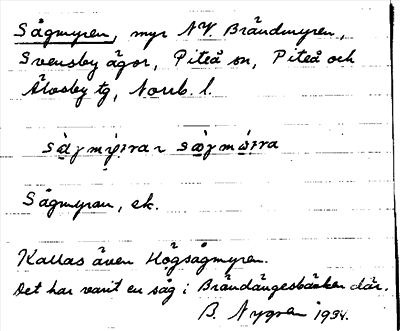 Sågmyren, myr NV Brändmyren,
Svensby ägor, Piteå sn, Piteå och
Älvsby tg, Norrb. l.
Sågmyran, ek.
Kallas även Högsågmyren.
Det har varit en såg i Brändängesbäcken där.
B. Nygren 1934.